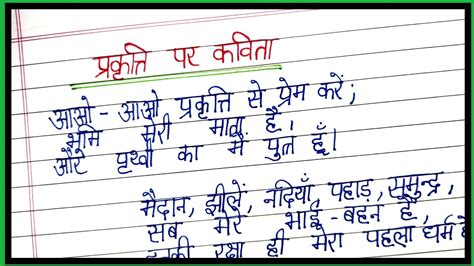 प्रकृत्ति पर कविता
आओ - आओ प्रकृत्ति से प्रेम करें;
भूमि मेरी माता है,
और पृथ्वी का मैं पुत्र हूँ।
मैदान, झीलें, नदियाँ, पहाड़, समुन्द्र,
सब मेरे भाई-बहन हैं,
इनकी रक्षा ही मेरा पहला धर्म है